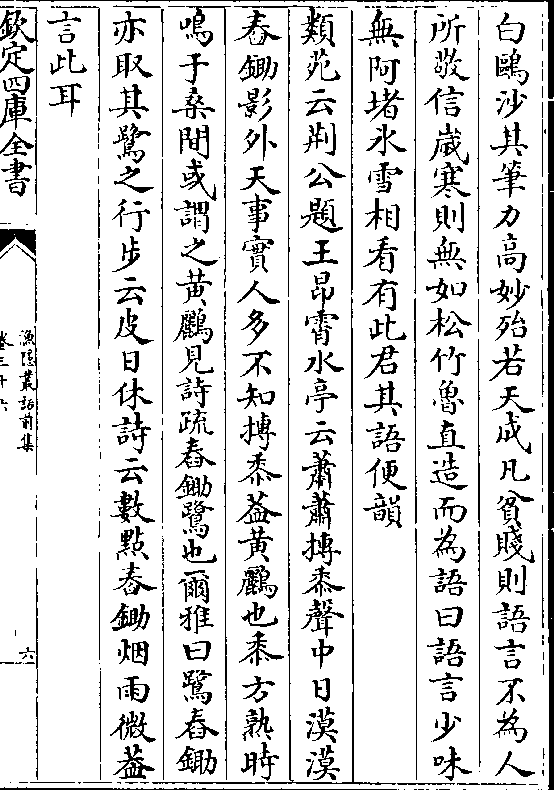 白鷗沙其筆力高妙殆若天成凡貧賤則語言不為人
所敬信嵗寒則無如松竹魯直造而為語曰語言少味
無阿堵氷雪相看有此君其語便韻
類苑云荆公題王昂霄水亭云蕭蕭摶黍聲中日漠漠
舂鋤影外天事實人多不知摶黍葢黄鸝也黍方熟時
鳴于桑間或謂之黄鸝見詩疏舂鋤鷺也爾雅曰鷺舂鋤
亦取其鷺之行步云皮日休詩云數點舂鋤烟雨微葢
言此耳
欽定四庫全書
漁隠叢話前集
卷三十六
六